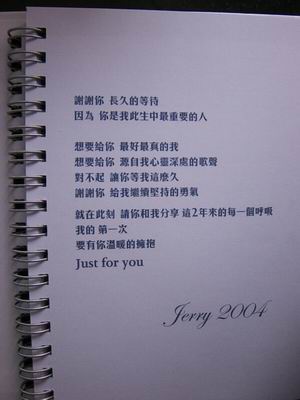 謝謝你 長久的等待
因為 你是我此生中最重要的人
想要給你 最好最真的我
想要給你 源自我心靈深處的歌聲
對不起 讓你等我這麼久
謝謝你 給我繼續堅持的勇氣
就在此刻 請你和我分享 這2年來的每一個呼吸
我的 第一次
要有你溫暖的擁抱
Just for you
Jerry 2004